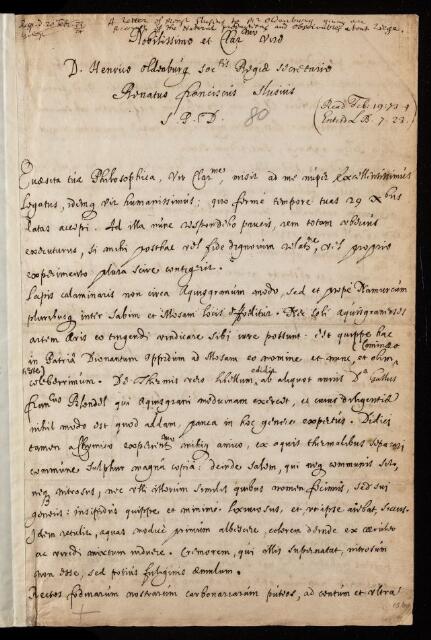 A letter of Monsr Slusius to Mr Oldenburg giving an
Account of the Natural productions and observables about Liege.
Nobilissimo et Clarmo Viro
D. Henrico Oldenburg Soctis Regiæ Secretario
Renatus Franciscus Slusius
S P. D.
80
(Read Feb. 19: 73/4
Entrd L B. 7. 23.)
Quæsita tua Philosophica, Vir Clarme, misit ad me nuper Excellentissimus
Legatus, idemq vir humanissimus; quo fermè tempore tuas 29 Xbris
datas accepi. Ad illa nunc respondebo paucis, rem totam uberius
executurus, si mihi posthac vel fide dignorum relatne, vel proprio
experimento plura scire contigerit.
Lapis calaminaris non circa Aquisgranum modo, sed et prope Namurcum
pluribusq inter Sabim et Mosam locis effoditur. Nec soli aquisgranenses
artem æris eo tingendi vindicare sibi jure possunt: est quippe hac
in Patriâ Dionantum oppidum ad Mosam eo nomine et nunc, et olim
celeberrimum. De Thermis vero libellum edidit ab aliquot annis Ds
Francus Blondel qui Aquisgrani medicinam exercet, et cuius diligentiæ
nihil modo est quod addam, pauca in hoc genere expertus. Didici
tamen a Chymico mihiq amico, ex aquis thermalibus
commune sulphur magna copia: deinde salem, qui neq communis sit,
neq nitrosus, nec ulli illorum similis quibus nomen fecimus, sed sui
generis: insipidus quippe et minimè et, ut ipse aiebat,
idem retulit, aquas modicè primum albescere, colorem deinde ex cæruleo
ac viridi mixtum induere. Cremorem, qui illis supernatat, nitrosum
non esse, sed potius fuliginis æmulum.
Rectos fodinarum nostrarum carbonariarum puteos, ad centum et ultra